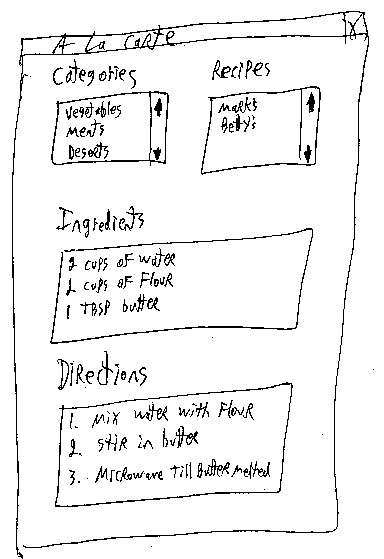 A La carte
X
Categories
Vegetables
Meats
Desarts
Recipes
Mark's
Betty's
Ingredients
2 cups of water
2 cups of Flour
1 TBSP butter
Directions
1. Mix water with Flour
2. Stir in butter
3. Microwave Till Butter melted